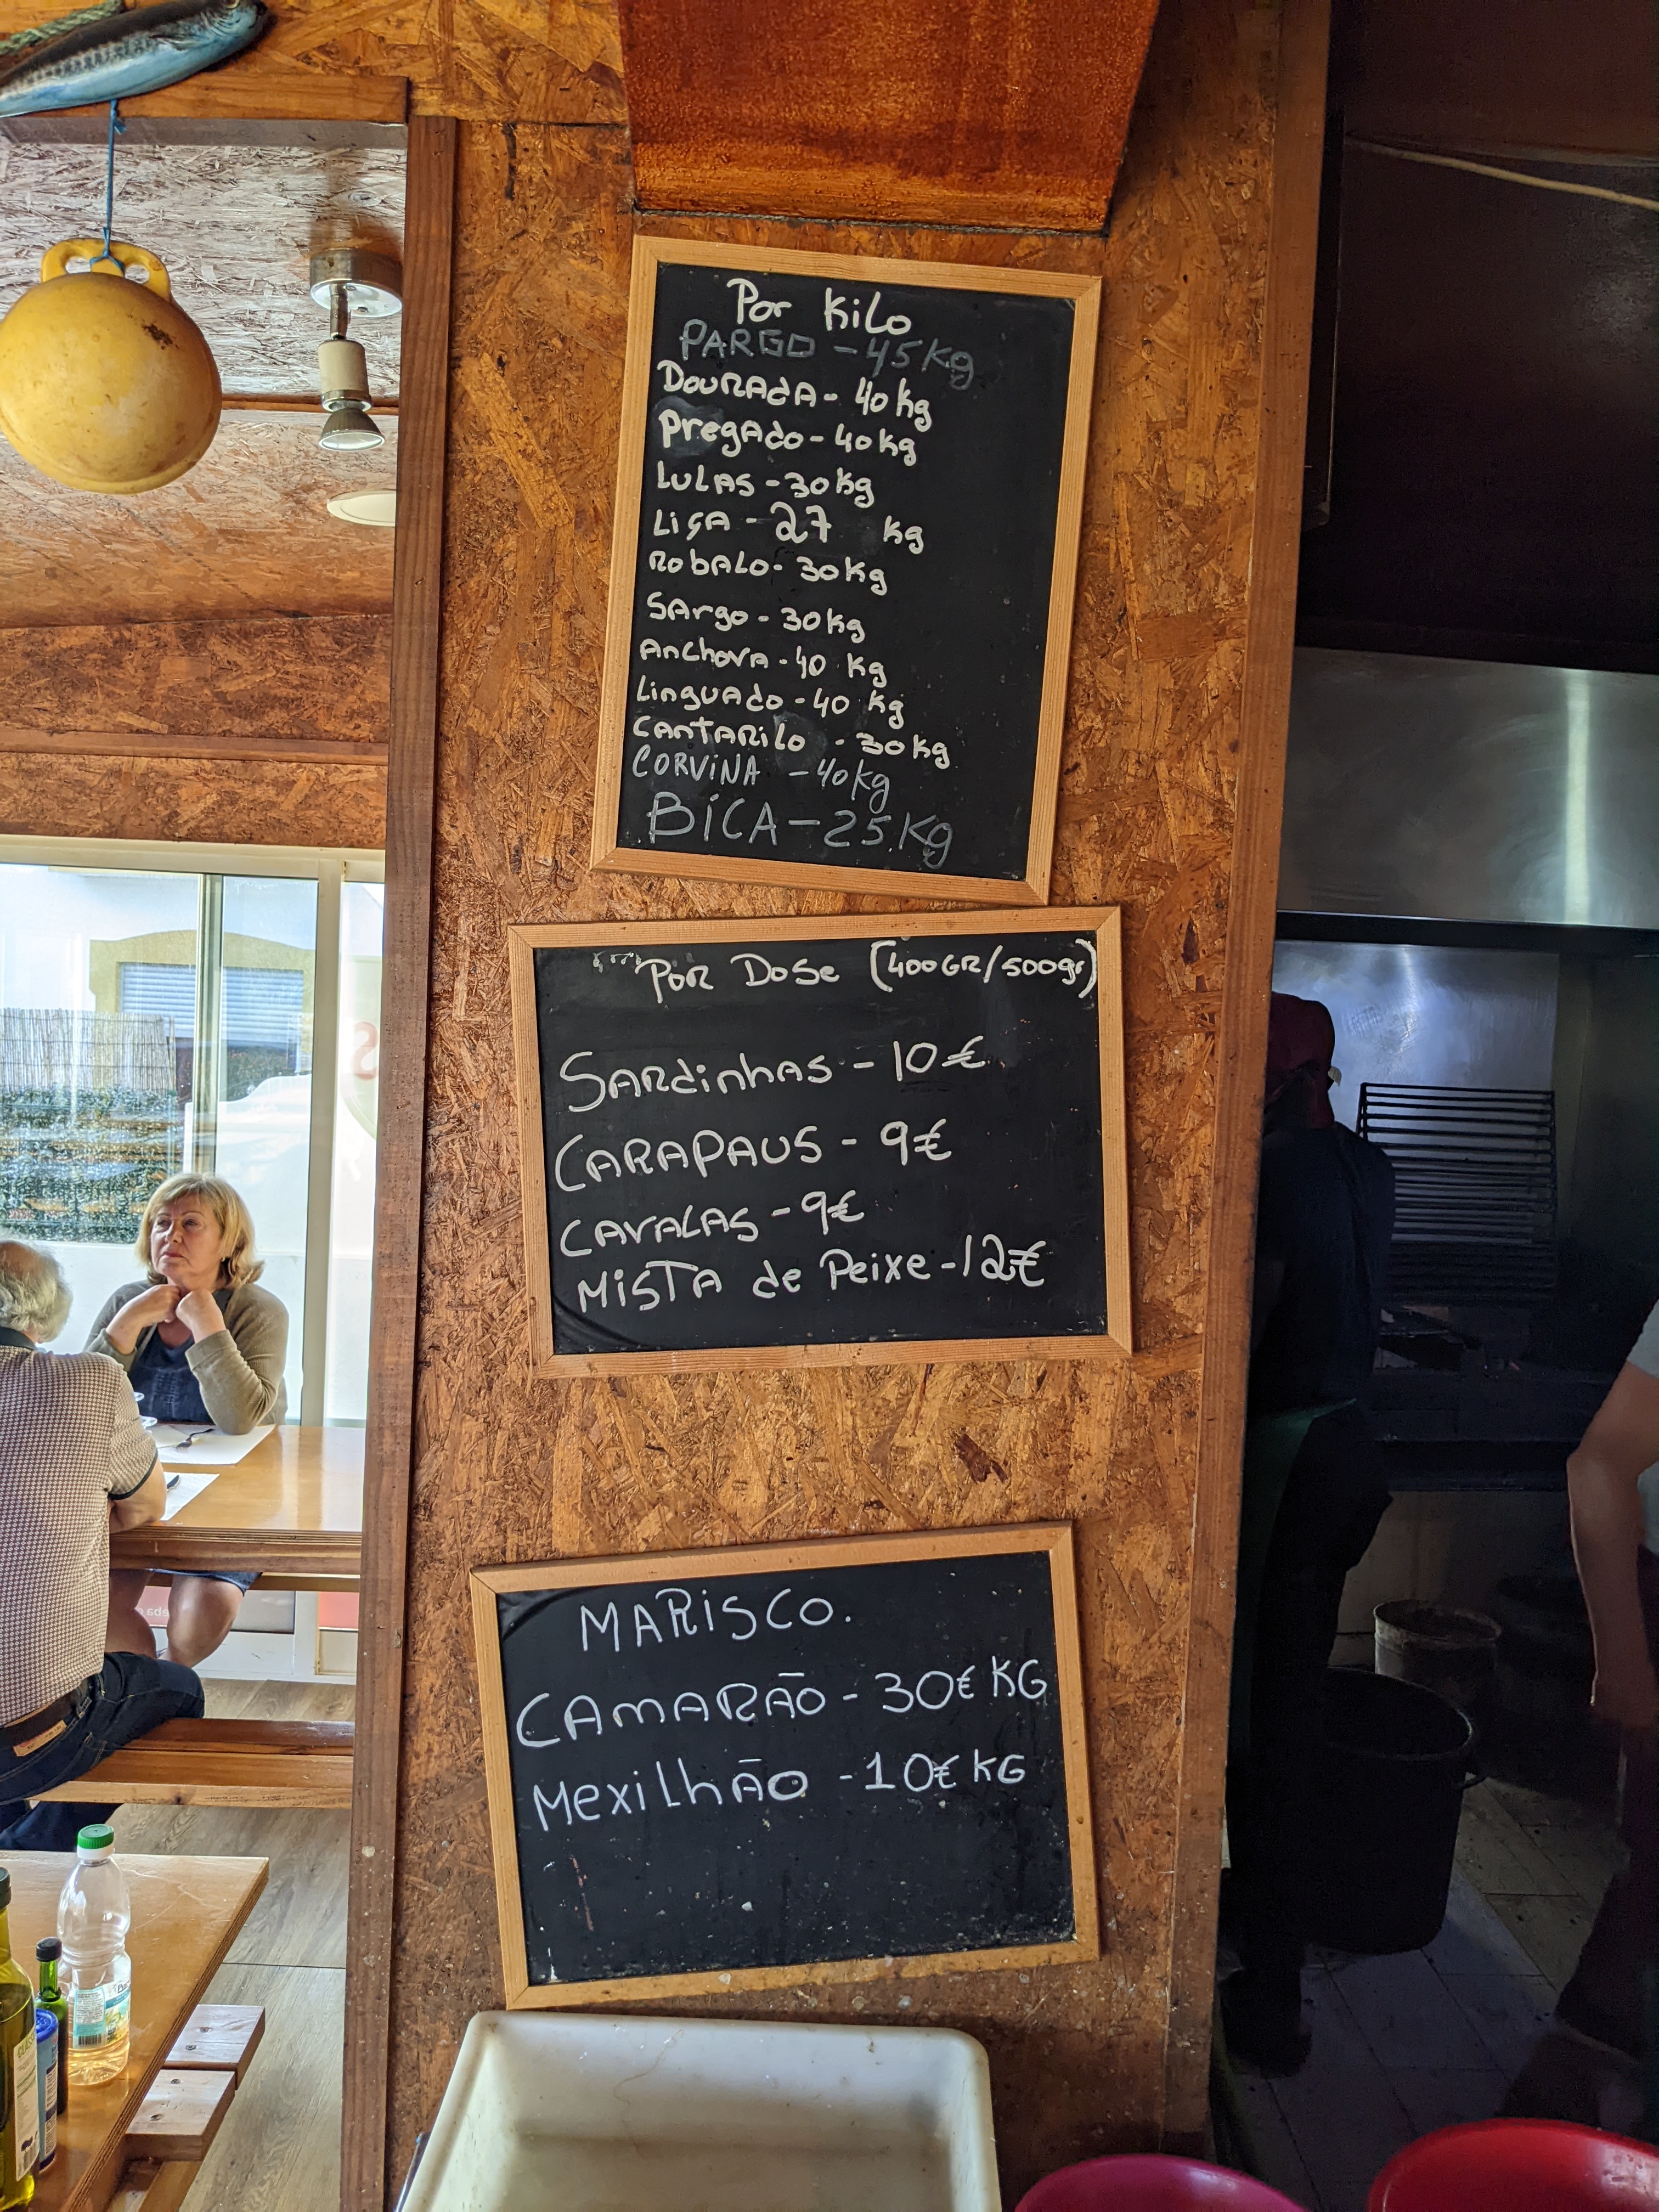 Por Kilo
PARGO - 45 Kg
DOURADA - 40 kg
PregAdo - 40 kg
LULAS - 30 kg
LiçA - 27 kg
RobALO - 30 Kg
SArgo - 30 kg
AnchovA - 40 kg
LinguAdo - 40 kg
CANTARiLo - 30 kg
CORViNA - 40 kg
BiCA - 25 Kg
POR DoSe (400GR/500gr)
SARdinhAS - 10€
CARAPAUS - 9€
CAVALAS - 9€
MiSTA de Peixe - 12€
MARiSCO.
CAmARÃO - 30€ KG
MexiLhÃO - 10€ KG